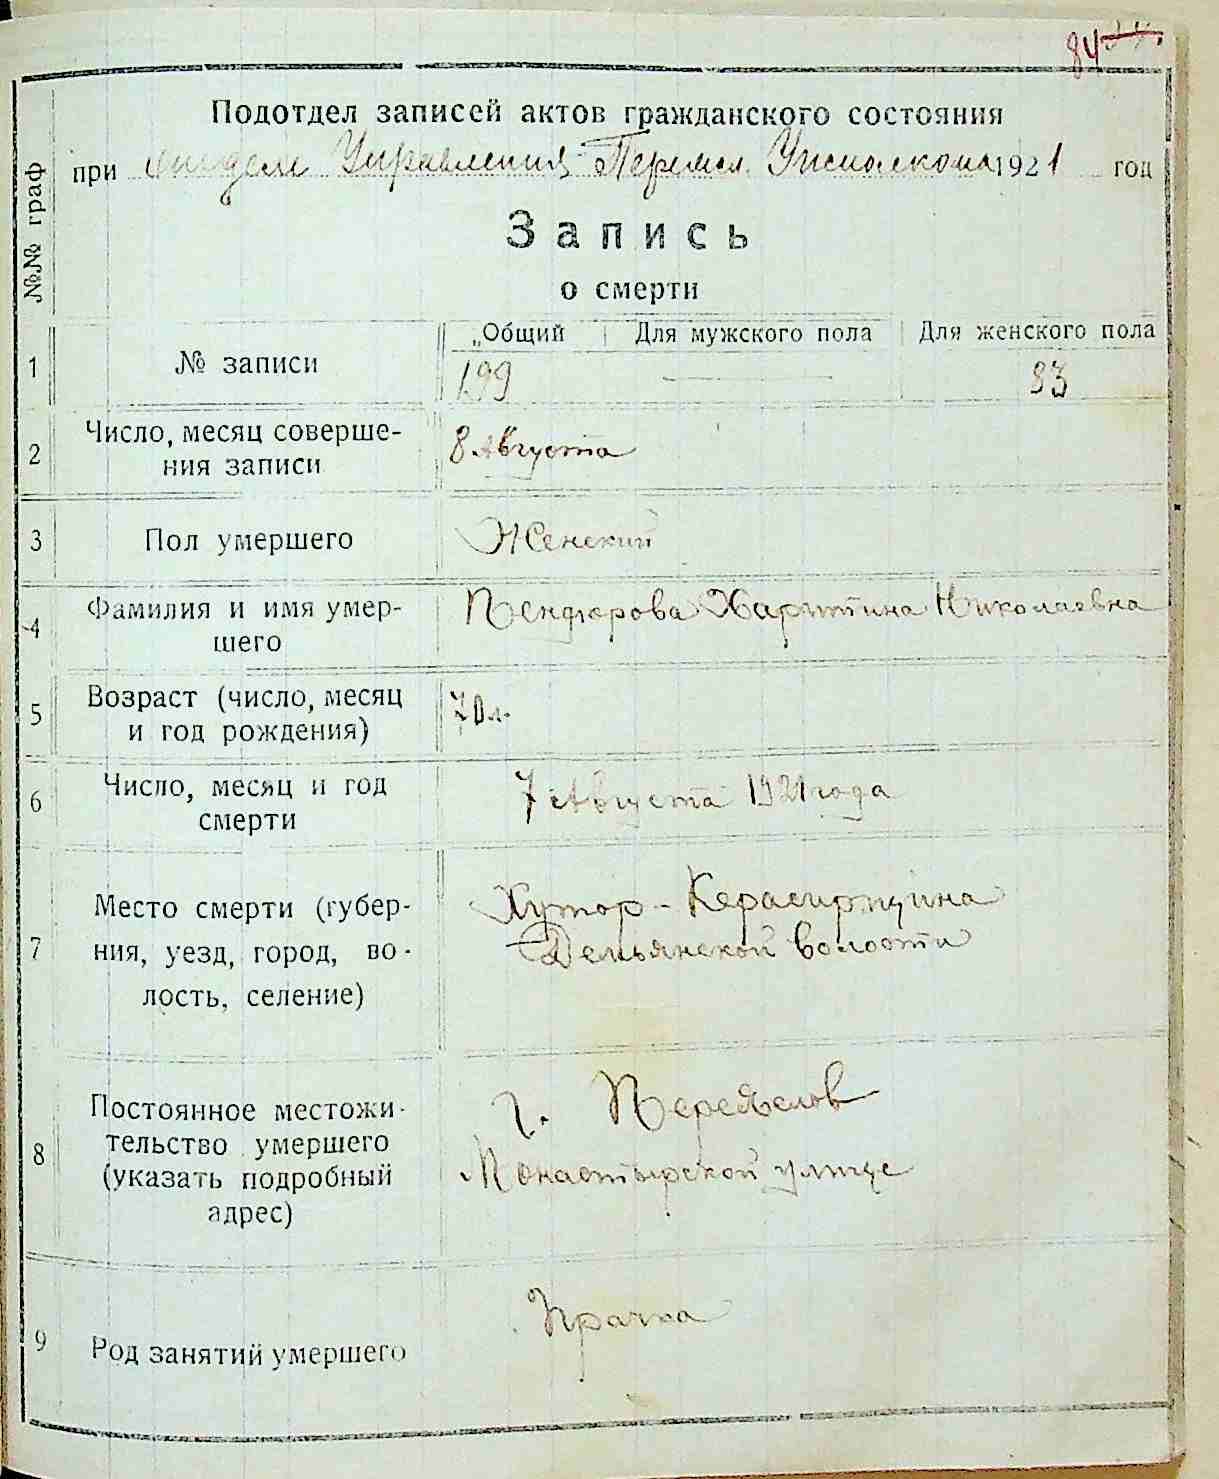 84
Подотдел записей актов гражданского состояния
при отделе Управления Перемсл. Уисполкома 1921 год
№№ граф
Запись
о смерти
1 № записи „Общий Для мужского пола Для женского пола
199 — 83
2 Число, месяц соверше-
ния записи 8 Августа
3 Пол умершего Женский
4 Фамилия и имя умер-
шего Пендюрова Харитина Николаевна
5 Возраст (число, месяц
и год рождения) 70 л.
6 Число, месяц и год
смерти 7 Августа 1921 года
7 Место смерти (губер-
ния, уезд, город, во-
лость, селение) Хутор -
Демьянской волости
8 Постоянное местожи-
тельство умершего
(указать подробный
адрес) г.
Монастырской улице
9 Род занятий умершего Прачка